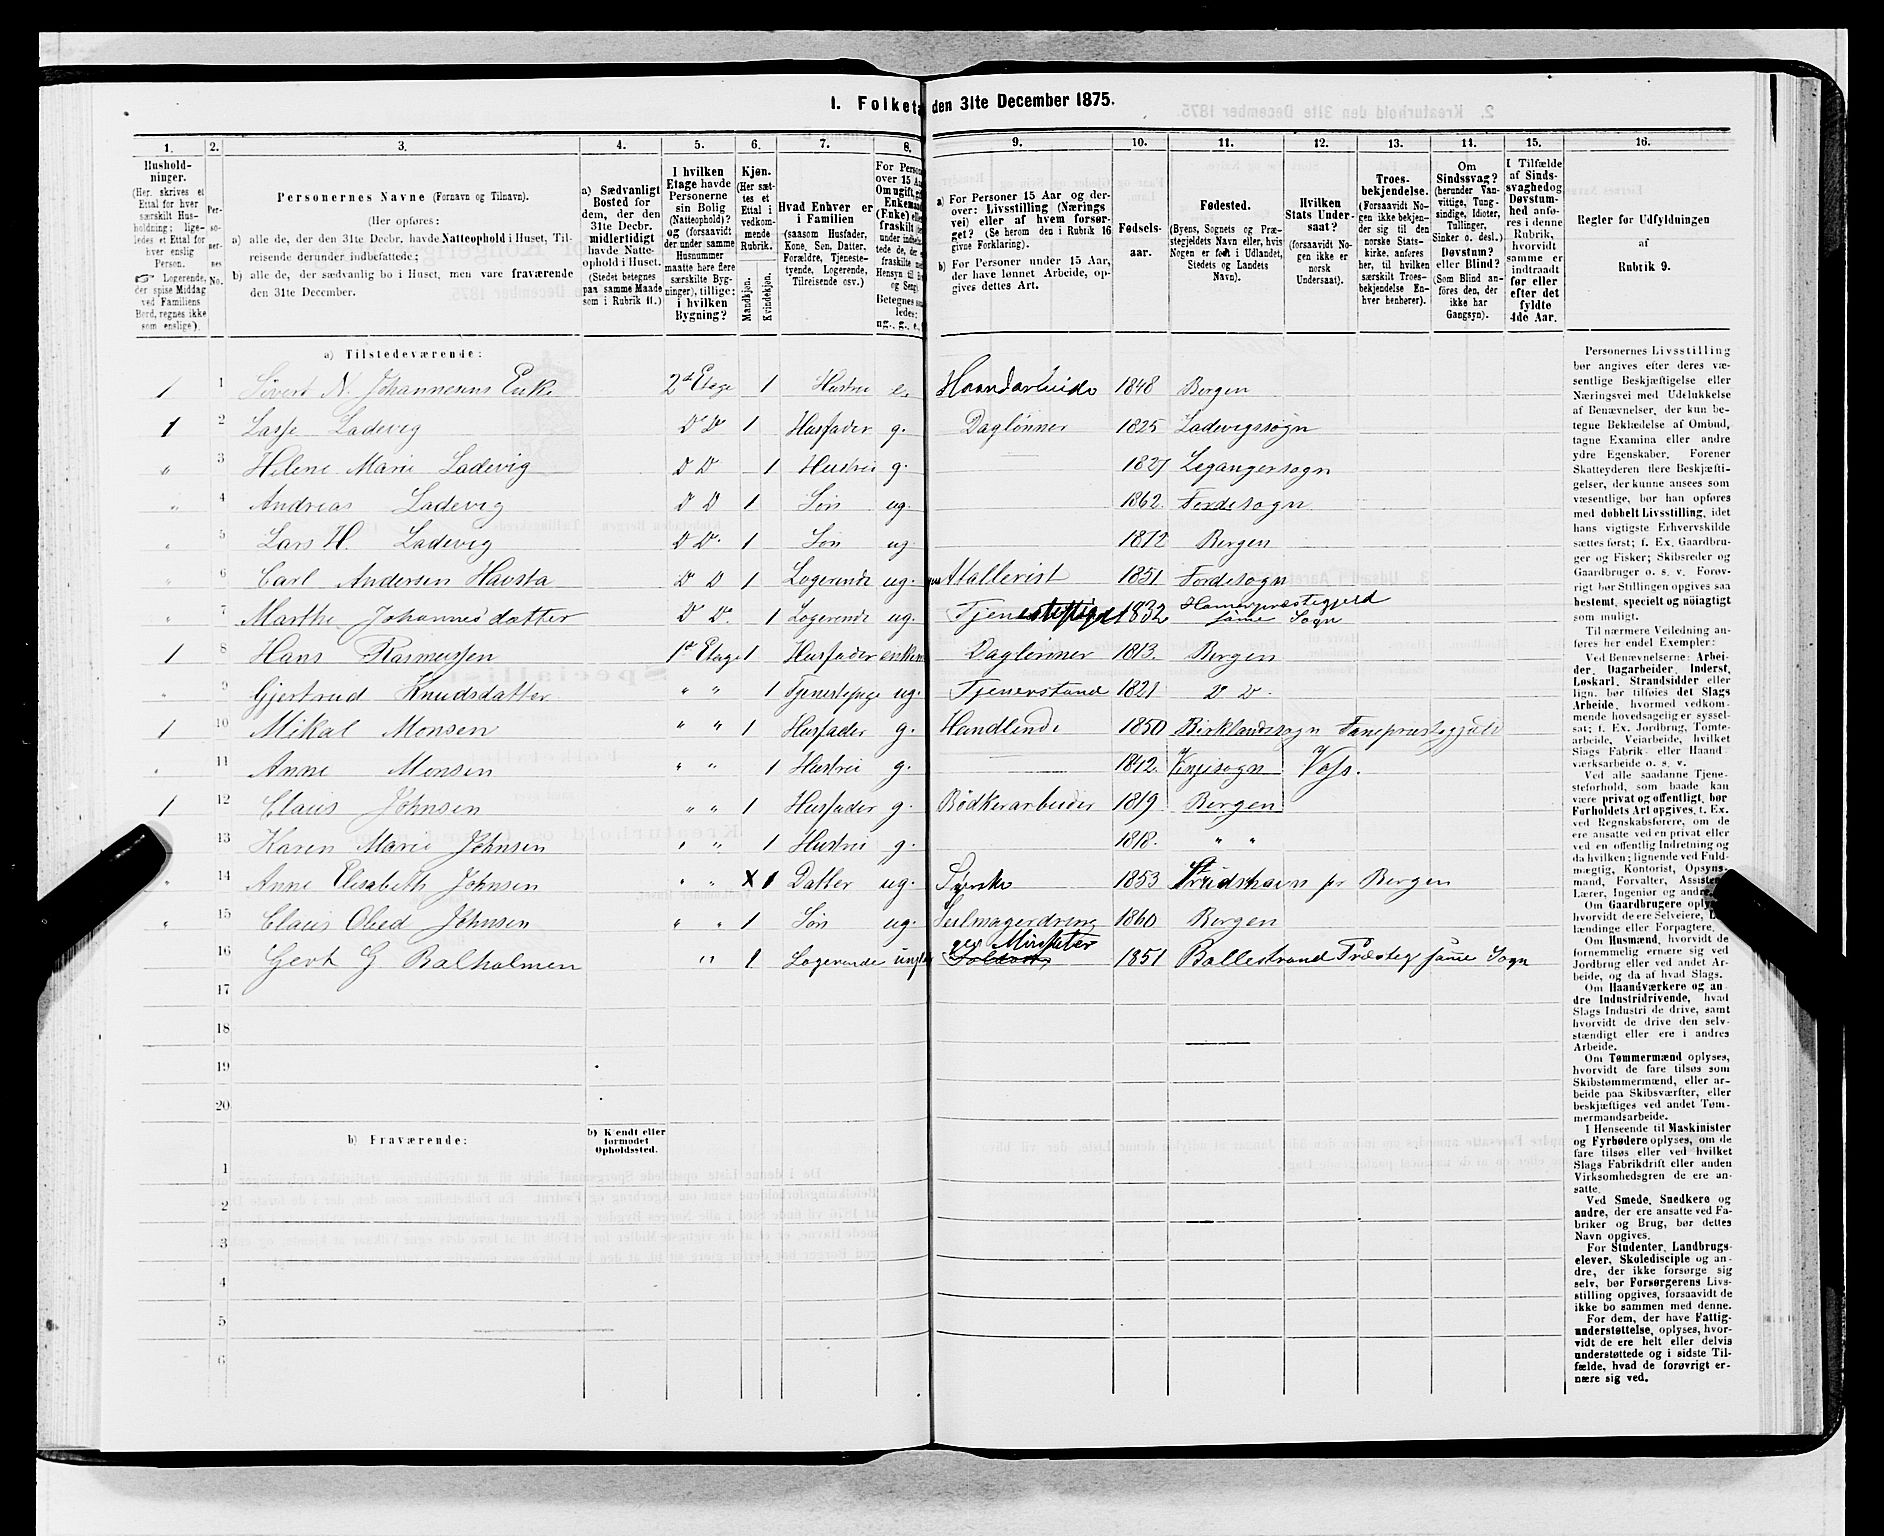 1. Folketæ den 31te December 1875.
1. 2. 3. 4. 5. 6. 7. 8. 9. 10. 11. 12. 13. 14. 15. 16.
Hushold-
ninger.
(Her skrives et
Ettal for hver
særskilt Hus-
holdning; lige-
ledes et Ettal for
hver enslig
Person.
☞ Logerende,
der spise Middag
ved Familiens
Bord, regnes ikke
som enslige).
Per-
so-
ner-
nes
No.
Personernes Navne (Fornavn og Tilnavn).
(Her opføres:
a) alle de, der den 31te Decbr. havde Natteophold i Huset, Til-
reisende derunder indbefattede;
b) alle de, der sædvanlig bo i Huset, men vare fraværende
den 31te December.
a) Sædvanligt
Bosted for
dem, der den
31te Decbr.
midlertidigt
havde Natte-
ophold i Huset.
(Stedet betegnes
paa samme Maade
som i Rubrik 11.)
I hvilken
Etage havde
Personerne
sin Bolig
(Natteophold)?
og (forsaavidt
der under samme
Husnummer
maatte høre flere
særskilte Byg-
ninger), tillige:
i hvilken
Bygning?
Kjøn.
(Her sæt-
tes et
Ettal i
vedkom-
mende
Rubrik.
Mandkjøn.
Kvindekjøn.
Hvad Enhver er
i Familien
(saasom Husfader,
Kone, Søn, Datter,
Forældre, Tjeneste-
tyende, Logerende,
Tilreisende osv.)
For Person
over 15 Aa
Om ugift, gi
Enkemand
(Enke) elle
fraskilt
a) For Personer 15 Aar og der-
over: Livsstilling (Nærings
vei) eller af hvem forsør-
get? (Se herom den i Rubrik 16
givne Forklaring).
b) For Personer under 15 Aar,
der have lønnet Arbeide, op-
gives dettes Art.
Fødsels-
aar.
Fødested.
(Byens, Sognets og Præ-
stegjeldets Navn eller, hvis
Nogen er født i Udlandet,
Stedets og Landets
Navn).
Hvilken
Stats Under-
saat?
(forsaavidt No-
gen ikke er
norsk
Undersaat).
Troes-
bekjendelse.
(Forsaavidt No-
gen ikke bekjen-
der sig til den
norske Stats-
kirke, anføres
her, til hvilken
særskilt Troes-
bekjendelse En-
hver henhører).
Om
Sindssvag?
(herunder Van-
vittige, Tung-
sindige, Idioter,
Tullinger,
Sinker o. desl.)
Døvstum?
eller Blind?
(Som Blind an-
føres den, der
ikke har
Gangsyn).
I Tilfælde
af Sinds-
svaghed og
Døvstum-
hed anfø-
res i denne
Rubrik,
hvorvidt
samme er
indtraadt
før eller
efter det
fyldte
4de Aar.
Regler for Udfyldningen
af
Rubrik 9.
a) Tilstedeværende:
1 1 Sivert N. Johannesens Enke 2d Etage 1 Hustru e. Haandarbeide 1848 Bergen
1 2 Lasse Ladevig D D 1 Husfader g. Daglønner 1825 Ladevigssogn
" 3 Helene Marie Ladevig D D 1 Hustru g. 1827 Leganger sogn
" 4 Andreas Ladevig D D 1 Søn ug. 1862 Førdesogn
" 5 Lars H. Ladevig D D 1 Søn ug. 1872 Bergen
" 6 Carl Andersen Havsta D D 1 Logerende ug. 1851 Førdesogn
" 7 Marthe Johannesdatter D D 1 Logerende ug. Tjenestepige 1832 Hamerpræstegjeld samme Sogn
1 8 Hans Rasmussen 1st Etage 1 Husfader enkem Daglønner 1813 Bergen
" 9 Gjertrud Knudsdatter " " 1 Tjenestepige ug. Tjenerstand 1821 D D
1 10 Mikal Monsen " " 1 Husfader g. Handlende 1850 Birklandssogn Fanepræstegjeld
" 11 Anne Monsen " " 1 Hustru g. 1842 Vinjesogn Voss.
1 12 Claus Johnsen " " 1 Husfader g. Bødkerarbeider 1819 Bergen
" 13 Karen Marie Johnsen " " 1 Hustru g. 1818 " "
" 14 Anne Elisabeth Johnsen " " X 1 Datter ug. Syerske 1853 pr Bergen
" 15 Claus Obed Johnsen " " 1 Søn ug. Seilmagerdreng 1860 Bergen
16 Gert G Balholmen " 1 Logerende ungka Musketer Soldat 1851 Ballestrand Præsteg samme Sogn
17
18
19
20
b) Fraværende:
b) Kjendt eller
formodet
Opholdssted.
1
2
3
4
5
6
Personernes Livsstilling
bør angives efter deres væ-
sentlige Beskjæftigelse eller
Næringsvei med Udelukkelse
af Benævnelser, der kun be-
tegne Beklædelse af Ombud,
tagne Examina eller andre
ydre Egenskaber. Forener
Skatteyderen flere Beskjæfti-
gelser, der kunne ansees som
væsentlige, bør han opføres
med dobbelt Livsstilling, idet
hans vigtigste Erhvervskilde
sættes først; f. Ex. Gaardbru-
ger og Fisker; Skibsreder og
Gaardbruger o. s. v. Forøv-
rigt bør Stillingen opgives saa
bestemt, specielt og nöiagtigt
som muligt.
Til nærmere Veiledning an-
føres her endel Exempler:
Ved Benævnelserne: Arbei-
der, Dagarbeider, Inderst,
Løskarl, Strandsidder eller
lign. bør tilføies det Slags
Arbeide, hvormed vedkom-
mende hovedsagelig er syssel-
sat; f. Ex. Jordbrug, Tomte-
arbeide, Veiarbeide, hvilket
Slags Fabrik- eller Haand
værksarbeide o. s. v.
Ved alle saadanne Tjene-
steforhold, som baade kan
være privat og offentligt, bør
Forholdets Art opgives, f. Ex.
ved Regnskabsførere, om de
ere ansatte ved en privat eller
ved en offentlig Indretning og
da hvilken; lignende ved Fuld-
mægtig, Kontorist, Opsyns-
mand, Forvalter, Assisten
Lærer, Ingeniør og andre
Om Gaardbrugere oply
hvorvidt de ere Selveiere,
lændinge eller Forpagtere.
Om Husmænd, hvorvidt de
fornemmelig ernære sig ved
Jordbrug eller ved andet Ar-
beide, og da af hvad Slags.
Om Haandværkere og an
dre Industridrivende, hvad
Slags Industri de drive, samt
hvorvidt de drive den selv-
stændigt eller ere i andres
Arbeide.
Om Tømmermænd oplyses,
hvorvidt de fare tilsøs som
Skibstømmermænd, eller ar-
beide paa Skibsværfter, eller
beskjæftiges ved andet Tøm-
mermandsarbeide.
I Henseende til Maskinister
og Fyrbødere oplyses, om de
fare tilsøs eller ved hvilket
Slags Fabrikdrift eller anden
Virksomhedsgren de ere an-
satte.
Ved Smede, Snedkere og
andre, der ere ansatte ved Fa-
briker og Brug, bør dettes
Navn opgives.
For Studenter, Landbrugs-
elever, Skoledisciple og an-
dre, der ikke forsørge sig
selv, bør Forsørgerens Livs-
stilling opgives, forsaavidt de
ikke bo sammen med denne.
For dem, der have Fattig-
understøttelse, oplyses, hvor-
vidt de ere helt eller delvis
understøttede og i sidste Til-
fælde, hvad de forøvrigt er-
nære sig ved.